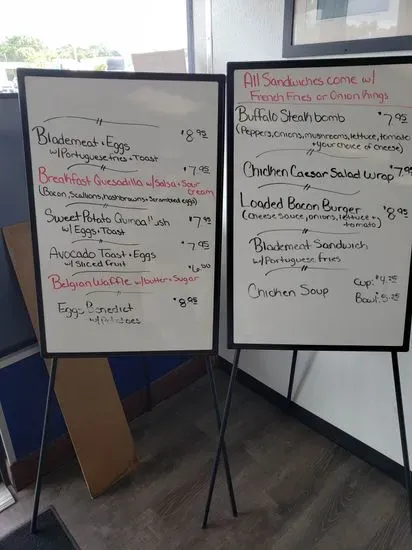 Blademeat + Eggs $8.95
w/Portuguese fries + Toast
Breakfast Quesadilla w/Salsa + Sour cream $7.95
(Bacon, Scallions, hashbrowns + Scrambled eggs)
Sweet Potato Quinoa $7.95
w/ Eggs, Toast
Avocado Toast + Eggs $7.95
w/ Sliced fruit
Belgian Waffle w/butter + Sugar $6.00
Eggs Benedict $8.95
w/Potatoes
All Sandwiches come w/
French Fries or Onion Rings
Buffalo Steak bomb $7.95
(Peppers, onions, mushrooms, lettuce, tomato
+ your choice of cheese)
Chicken Caesar Salad Wrap $7.95
Loaded Bacon Burger $8.95
(cheese sauce, onions, lettuce +
tomato)
Blademeat Sandwich
w/Portuguese fries
Chicken Soup Cup: $4.25
Bowl: 5.25